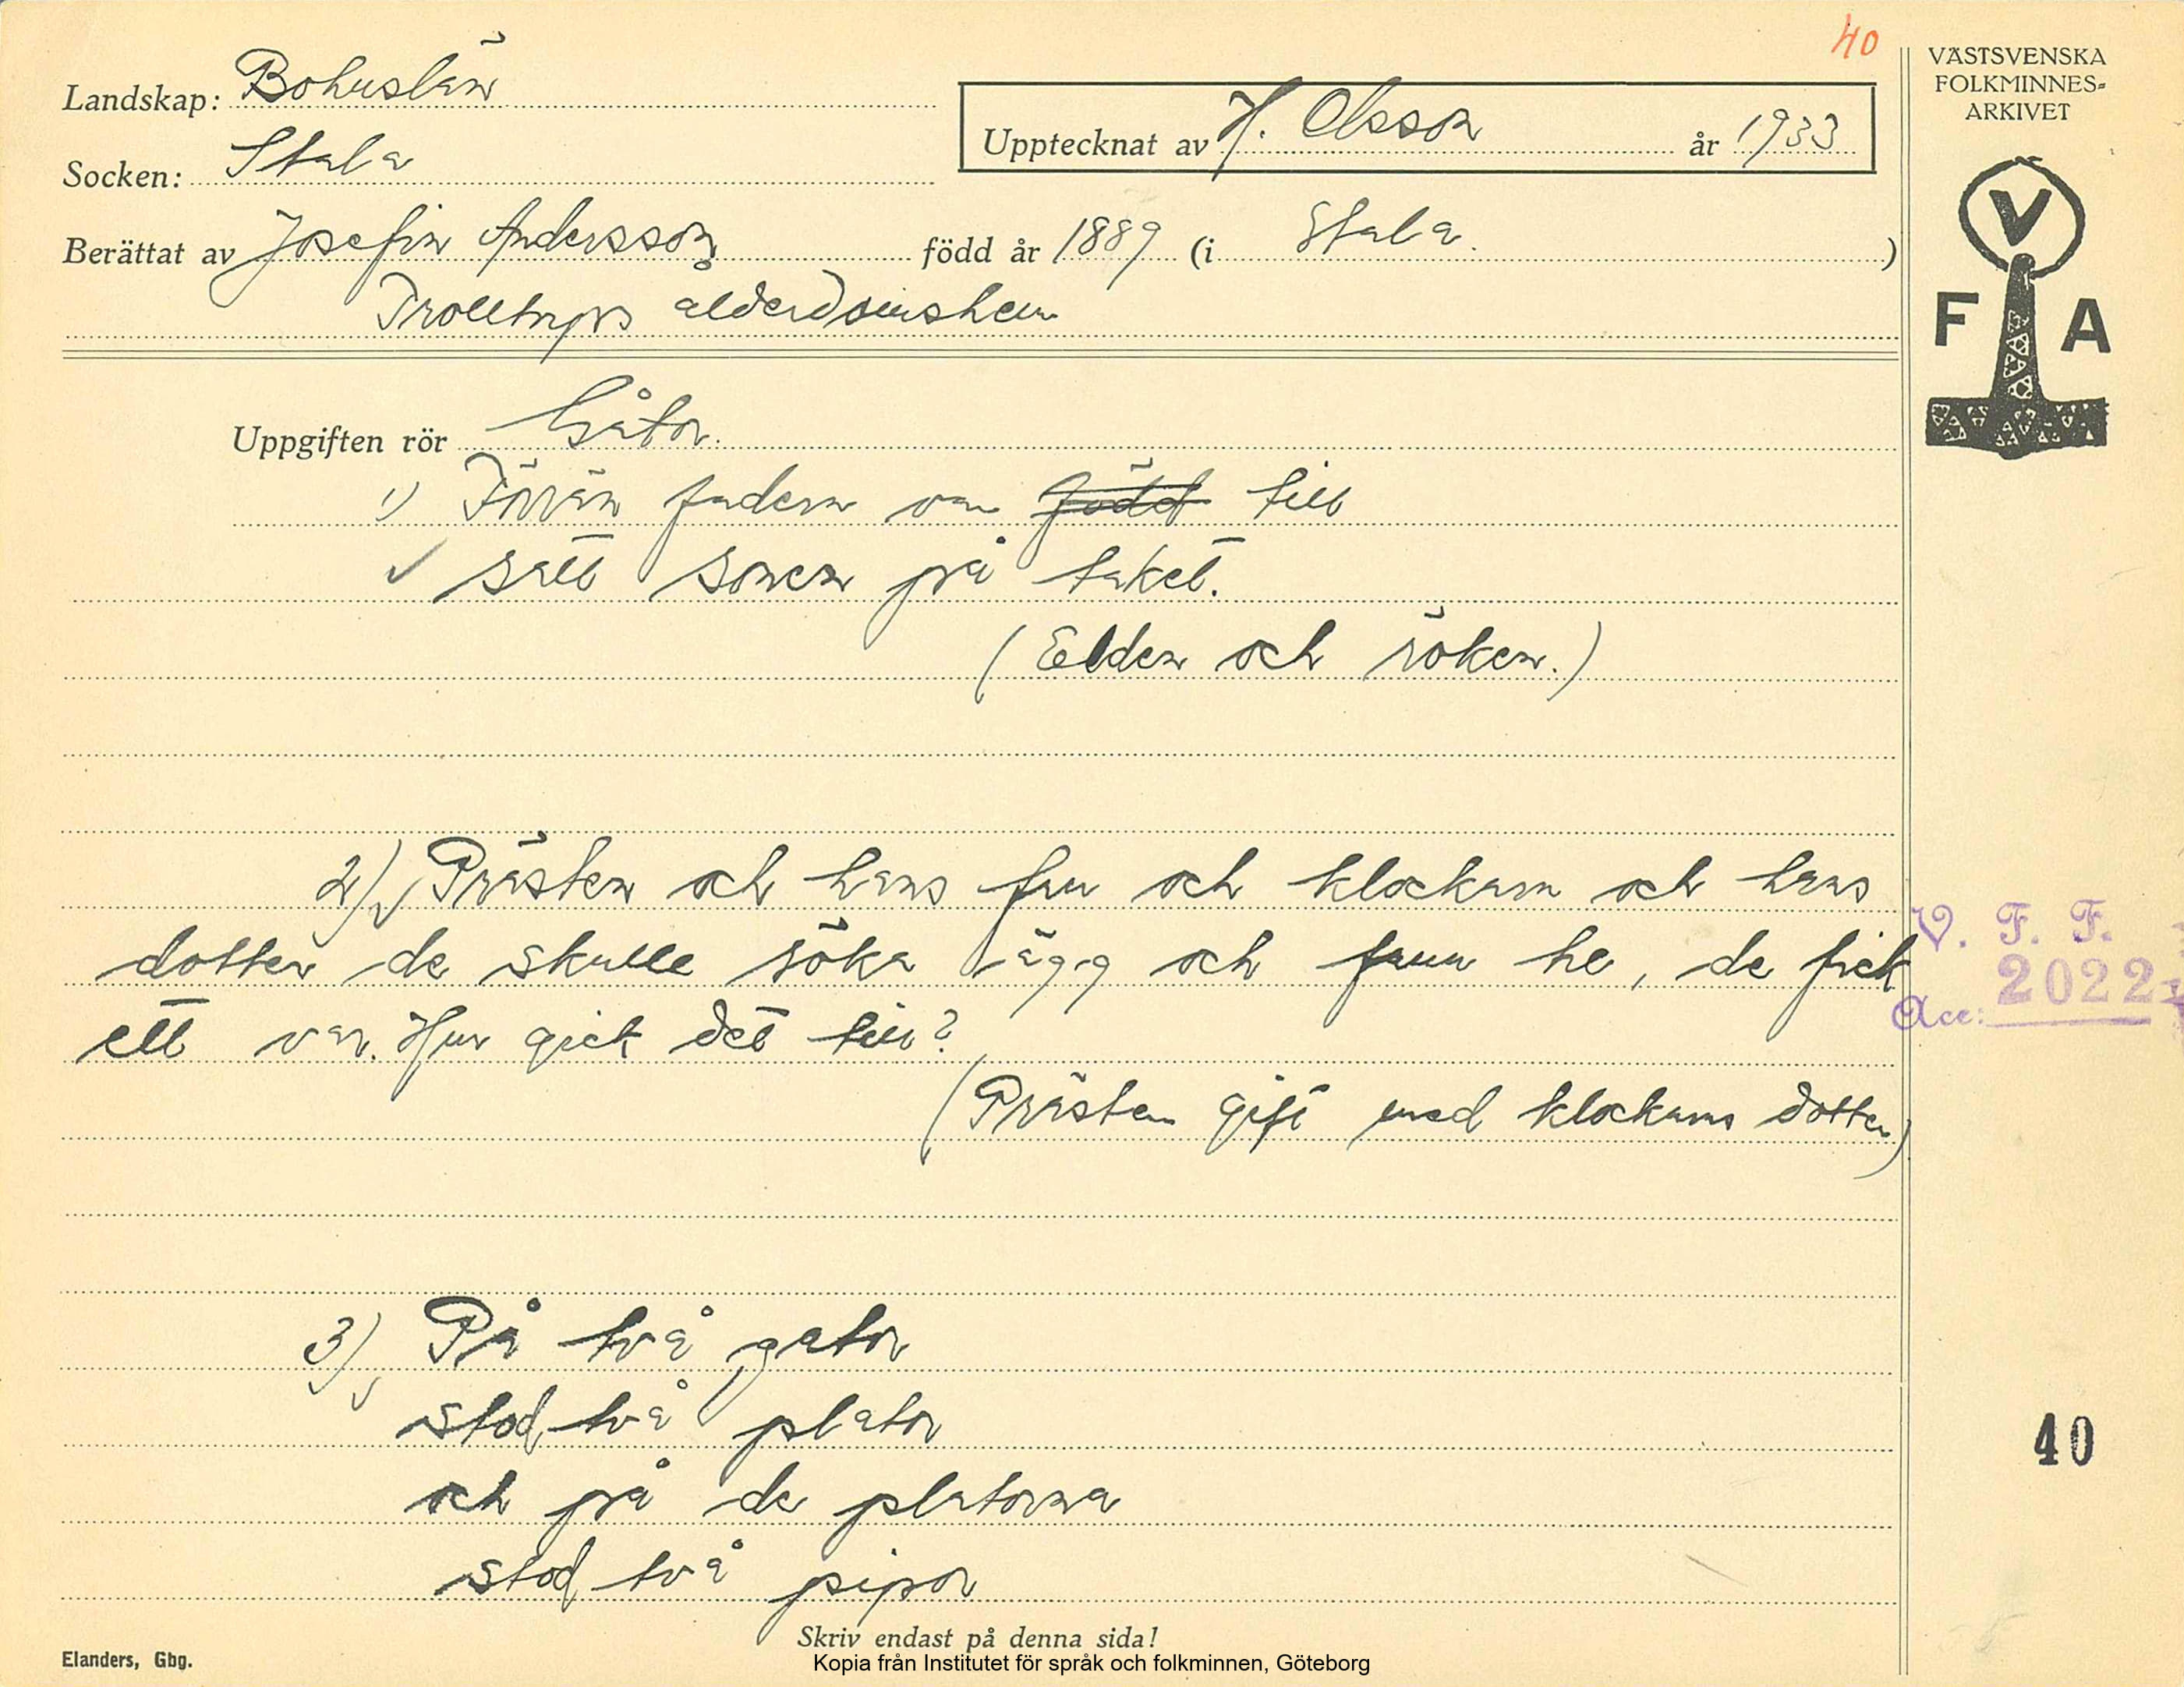 40
Landskap: Bohuslän
Upptecknat av H. Olsson år 1933
Socken: Stala
Berättat av Josefin Andersson född år 1889 (i Stala.)
ålderdomshem
Uppgiften rör Gåtor.
1) Förrän fadern var född till
satt sonen på taket.
(Elden och röken.)
2) Prästen och hans fru och klockarn och hans
dotter de skulle söka ägg och funn he, de fick
ett var. Hur gick det till?
(Prästen gift med klockarns dotter)
3) På två gator
stod två plator
och på de platorna
stod två pipor
Skriv endast på denna sida!
Elanders, Gbg.
Kopia från Institutet för språk och folkminnen, Göteborg
VÄSTSVENSKA
FOLKMINNES=
ARKIVET
V
F A
V. F. F.
Acc: 2022
40